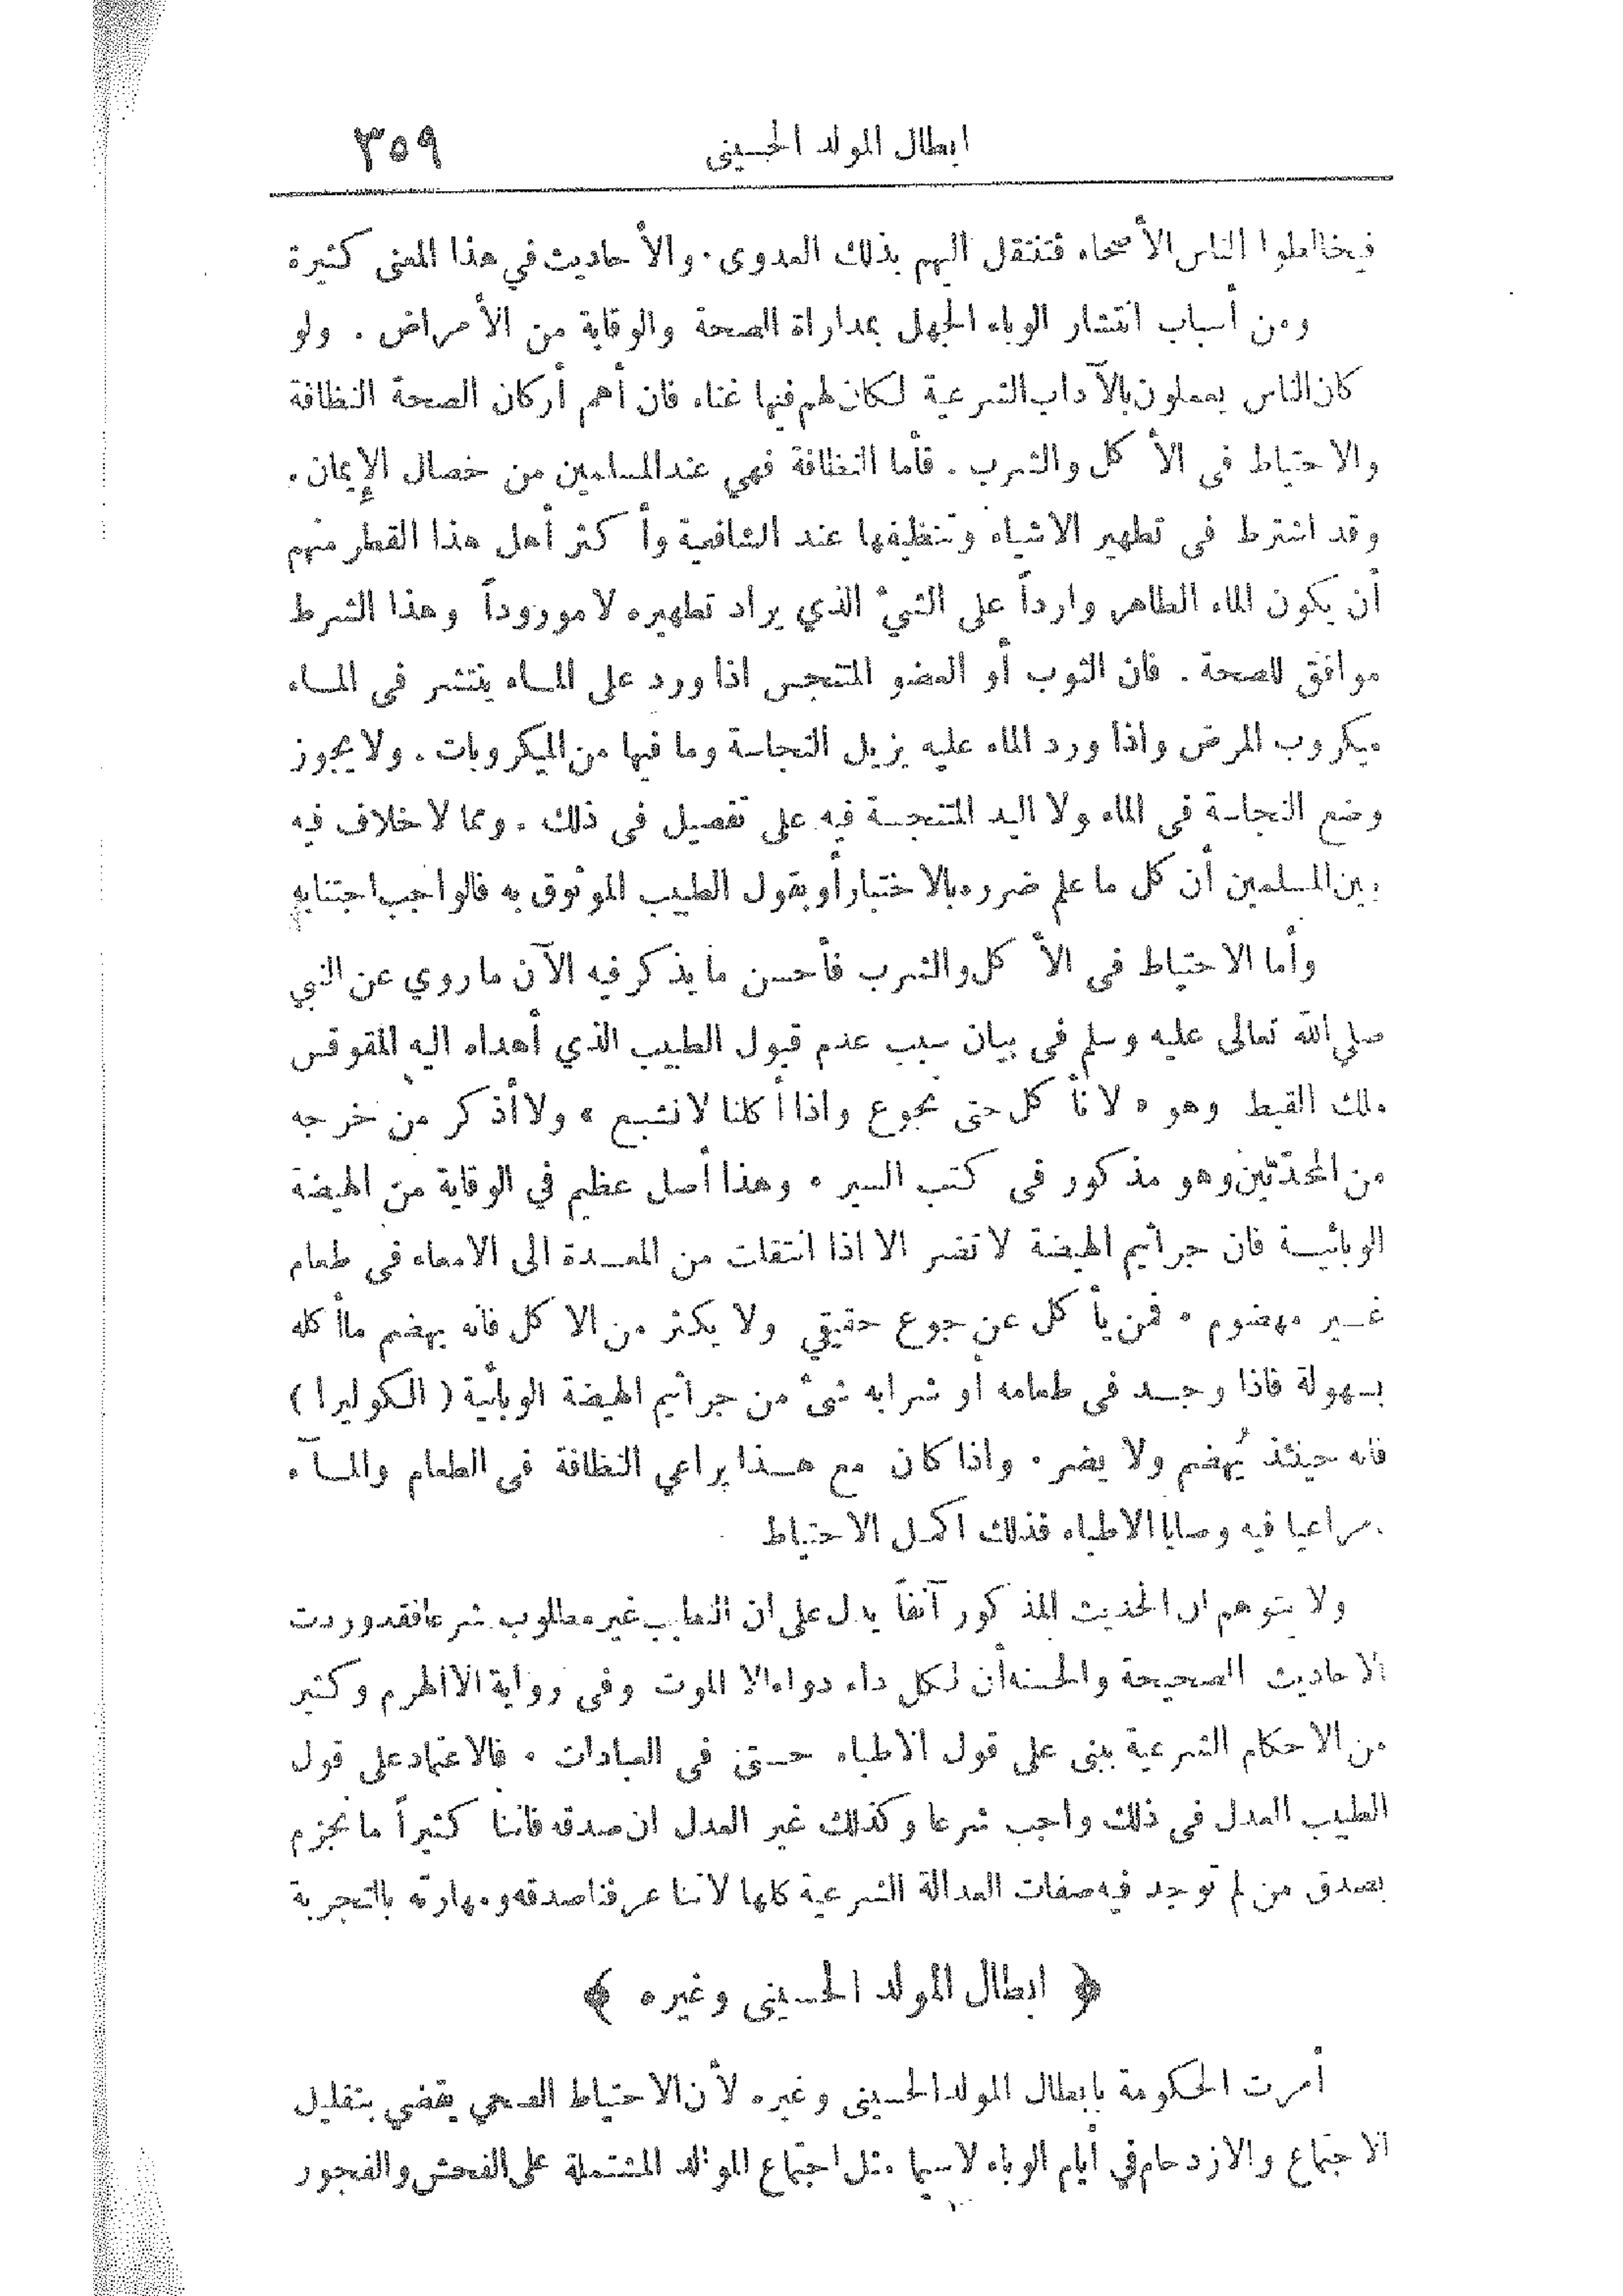 ابطال المولد الحسيني ٣٥٩
فيخالطوا الناس الأصحاء فتنتقل اليهم بذلك العدوى. والأحاديث في هذا المعنى كثيرة
ومن أسباب انتشار الوباء الجهل بمداراة الصحة والوقاية من الأمراض . ولو
كان الناس يعملون بالآداب الشرعية لكان لهم فيها غناء فان أهم أركان الصحة النظافة
والاحتياط في الأكل والشرب . فأما النظافة فهي عند المسلمين من خصال الإيمان .
وقد اشترط في تطهير الاشياء وتنظيفها عند الشافعية وأكثر أهل هذا القطر منهم
أن يكون الماء الطاهر وارداً على الشيء الذي يراد تطهيره لا موروداً وهذا الشرط
موافق للصحة . فان الثوب أو العضو المتنجس اذا ورد على الماء ينتشر في الماء
ميكروب المرض واذا ورد الماء عليه يزيل النجاسة وما فيها من الميكروبات . ولا يجوز
وضع النجاسة في الماء ولا اليد المتنجسة فيه على تفصيل في ذلك . ومما لا خلاف فيه
بين المسلمين أن كل ما علم ضرره بالاختبار أو بقول الطبيب الموثوق به فالواجب اجتنابه
وأما الاحتياط في الأكل والشرب فأحسن ما يذكر فيه الآن ما روي عن النبي
صلى الله تعالى عليه وسلم في بيان سبب عدم قبول الطبيب الذي أهداه اليه المقوقس
ملك القبط وهو « لا نأكل حتى نجوع واذا أكلنا لا نشبع » ولا أذكر من خرجه
من المحدّثين وهو مذكور في كتب السير . وهذا أصل عظيم في الوقاية من الهيضة
الوبائية فان جراثيم الهيضة لا تضر الا اذا انتقلت من المعدة الى الامعاء في طعام
غير مهضوم . فمن يأكل عن جوع حقيقي ولا يكثر من الاكل فانه يهضم ما أكله
بسهولة فاذا وجد في طعامه أو شرابه شئ من جراثيم الهيضة الوبائية ( الكوليرا )
فانه حينئذ يُهضم ولا يضر . واذا كان مع هذا يراعي النظافة في الطعام والماء
مراعيا فيه وصايا الاطباء فذلك اكمل الاحتياط
ولا يتوهم ان الحديث المذكور آنفاً يدل على ان التطبب غير مطلوب شرعا فقد وردت
الاحاديث الصحيحة والحسنه أن لكل داء دواء الا الموت وفي رواية الا الهرم وكثير
من الاحكام الشرعية يبنى على قول الاطباء حتى في العبادات . فالاعتماد على قول
الطبيب العدل في ذلك واجب شرعا وكذلك غير العدل ان صدقه فاننا كثيراً ما نجزم
بصدق من لم توجد فيه صفات العدالة الشرعية كلها لاننا عرفنا صدقه ومهارته بالتجربة
﴿ ابطال المولد الحسيني وغيره ﴾
أمرت الحكومة بابطال المولد الحسيني وغيره لأن الاحتياط الصحي يقضي بتقليل
الاجتماع والازدحام في أيام الوباء لا سيما مثل اجتماع الموالد المشتملة على الفحش والفجور